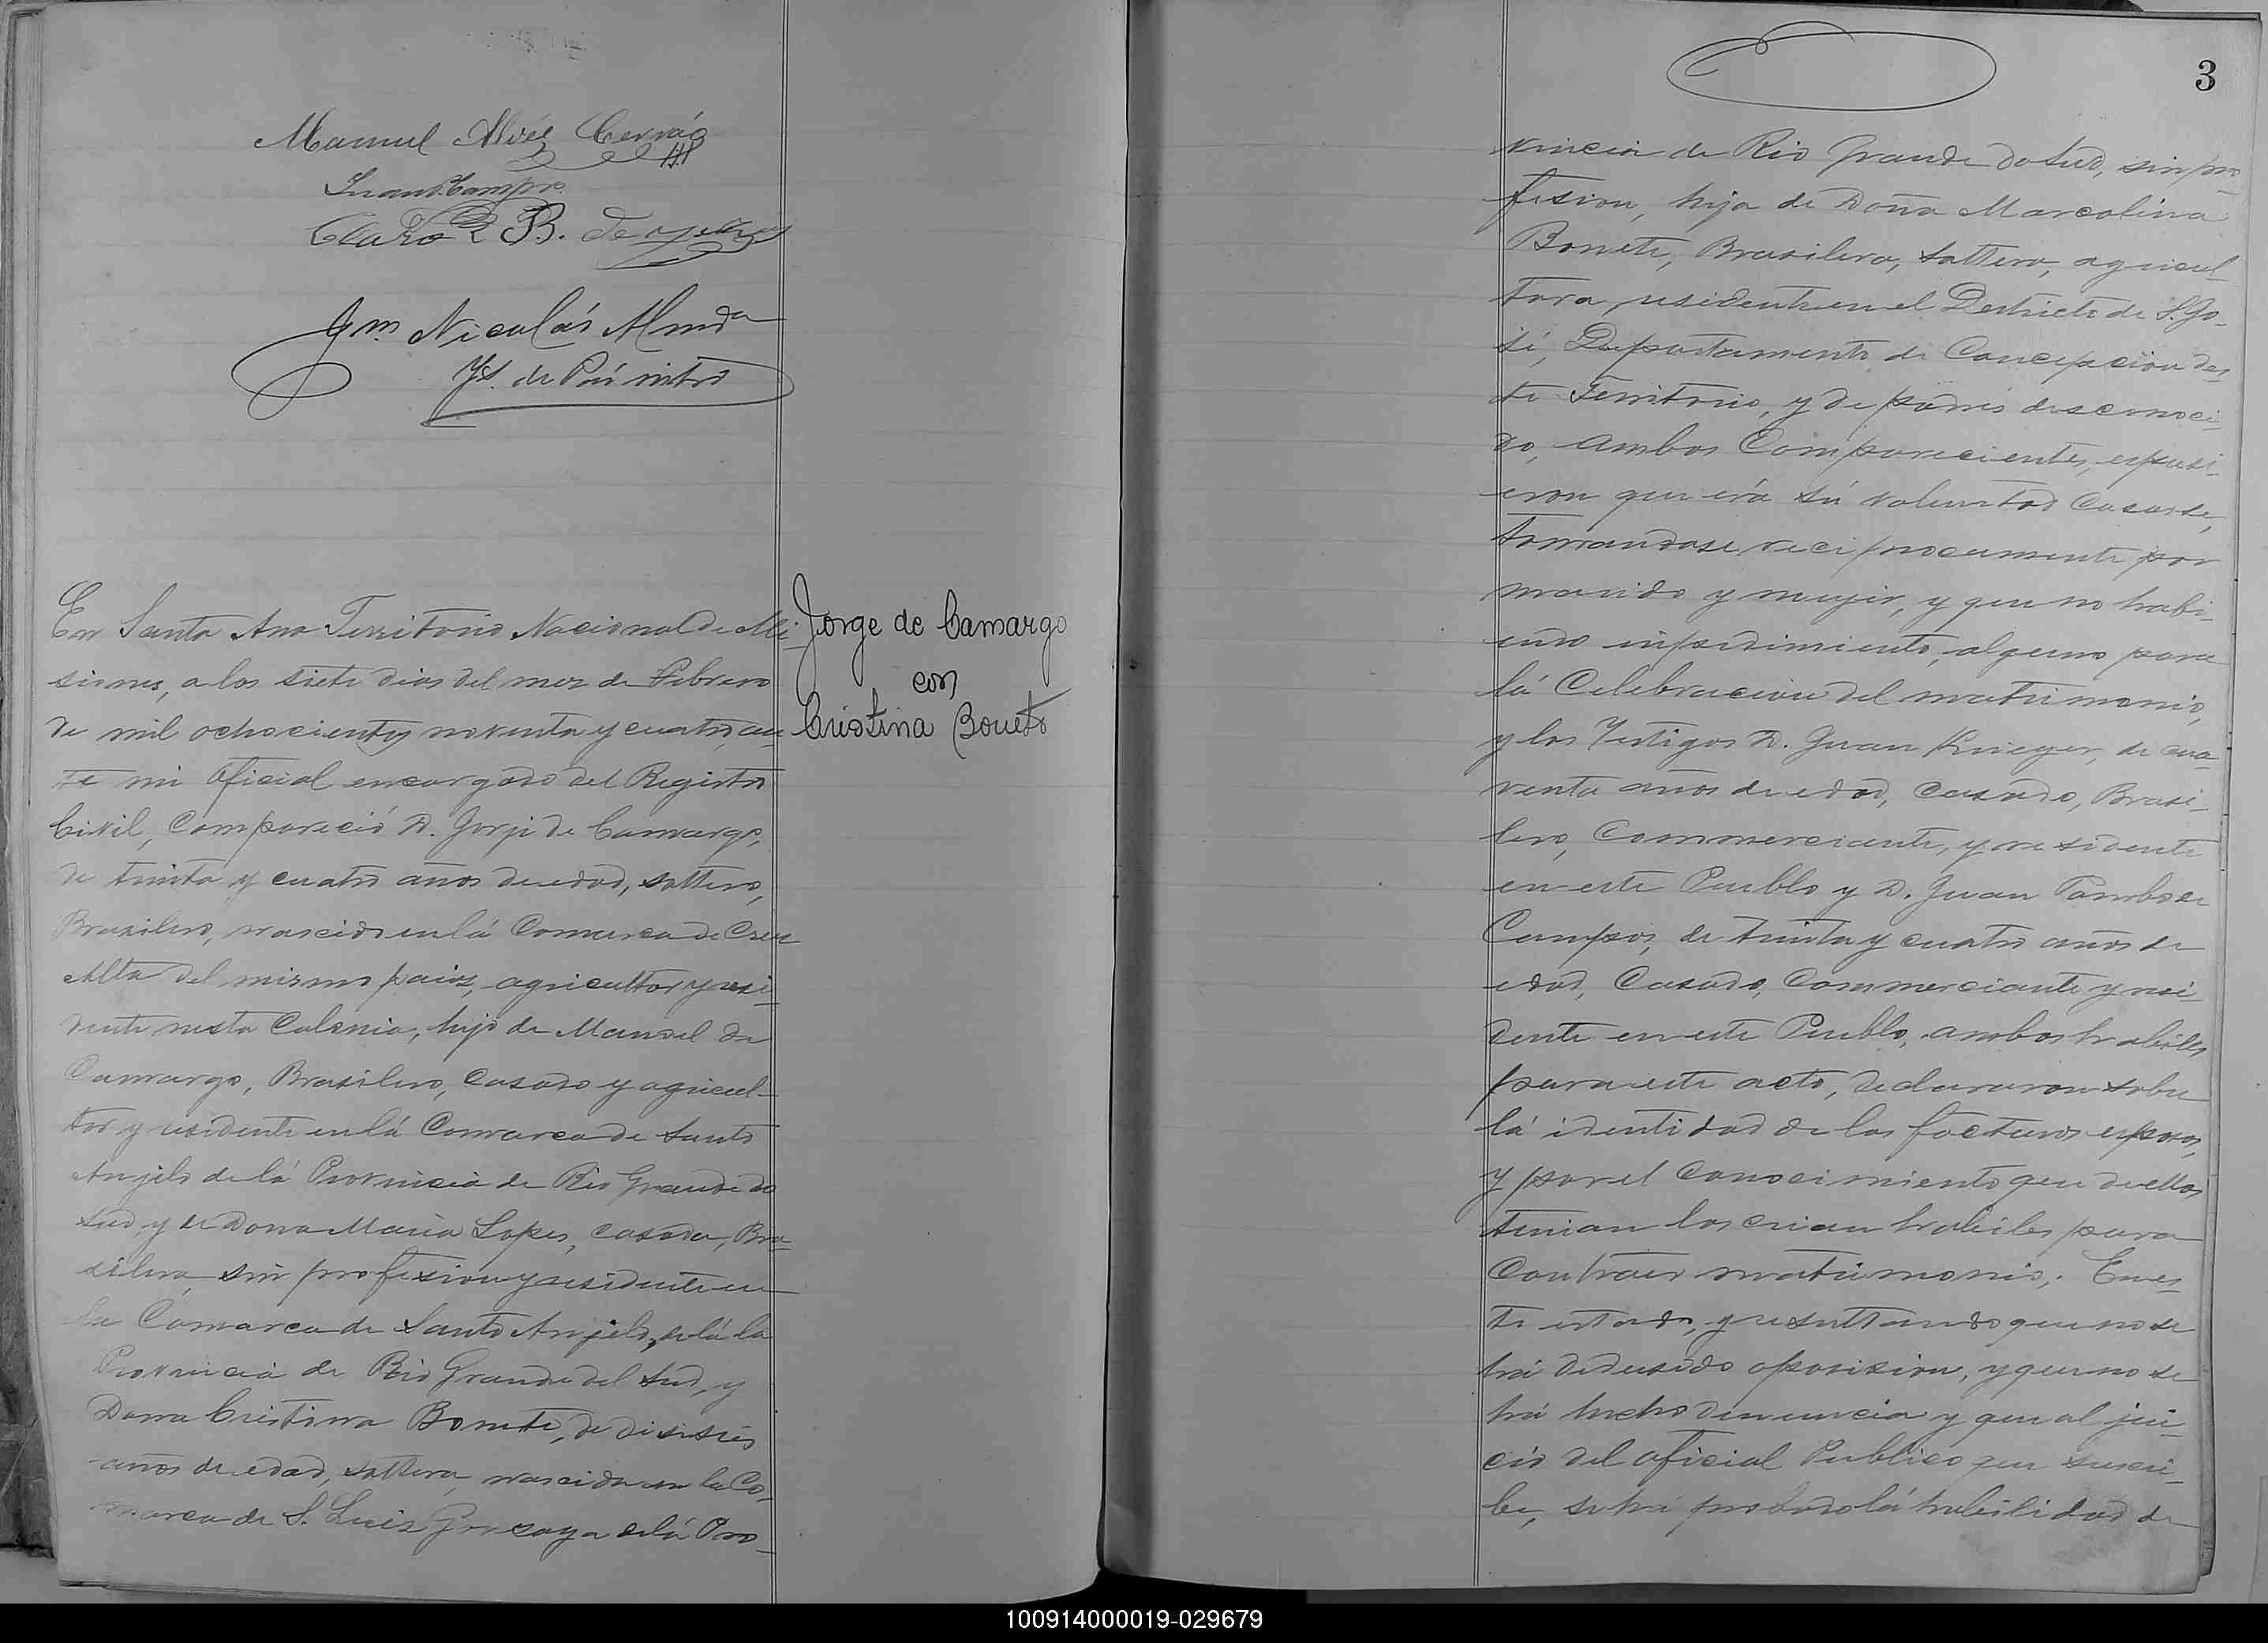 Manuel Alvés
Juan P. Campos
Claro B.
Jm. Nicolás Almda
En Santa Ana Territorio Nacional de Mi-
siones, a los siete dias del mez de Febrero
de mil ochocientos noventa y cuatro, an-
te mi Oficial encargado del Registro
Civil, Compareció D. Jorje de Camargo,
de trinta y cuatro años de edad, soltero,
Brasilero, nascido en lá Comarca de Cruz
Alta del mismo paiz, agricultor y resi-
dente nesta Colonia, hijo de Manoel de
Camargo, Brasilero, Casado y agricul-
tor y residente en lá Comarca de Santo
Anjelo de lá Provincia de Rio Grande do
Sud, y de Dona Maria Lopes, casada, Bra-
silera, sin profesion y residente en
la Comarca de Santo Anjelo, de lá
Provincia de Rio Grande del Sud, y
Dona Cristina Bonete, de diseseis
años de edad, soltera, nascida en la Co-
marca de S. Luis Gonzaga de lá Pro-
Jorge de Camargo
con
Cristina Boneto
3
vincia de Rio Grande do Sud, sin pro-
fesion, hija de Doña Marcolina
Bonete, Brasilera, soltera, agricul-
tora, residente en el Destricto de S. Jo-
sé, Departamento de Concepcion des-
te Territorio, y de padres desconoci-
do, ambos Comparecientes, espusi-
eron que erá sú voluntad Casarse,
tomandose reciprocamente por
marido y mujer, y que no habi-
endo impedimiento, alguno para
lá Celebracion del matrimonio,
y los Testigos D. Juan Krieger, de cua-
renta años de edad, Casado, Brasi-
lero, Commerciante, y residente
en este Pueblo y D. Juan
Campos, de trinta y cuatro años de
edad, Casado, Commerciante y resi-
dente en este Pueblo, ambos habiles
para este acto, declararon sobre
lá identidad de los focturos esposos,
y por el Conocimiento que de ellos
tenian los crian habiles para
Contraer matrimonio; En es-
te estado, y resultando que no se
há dedusido oposision, y que no se
há hecho denuncia y que al jui-
cio del oficial Publico que suscri-
be, se há probado lá habilidad de
100914000019-029679